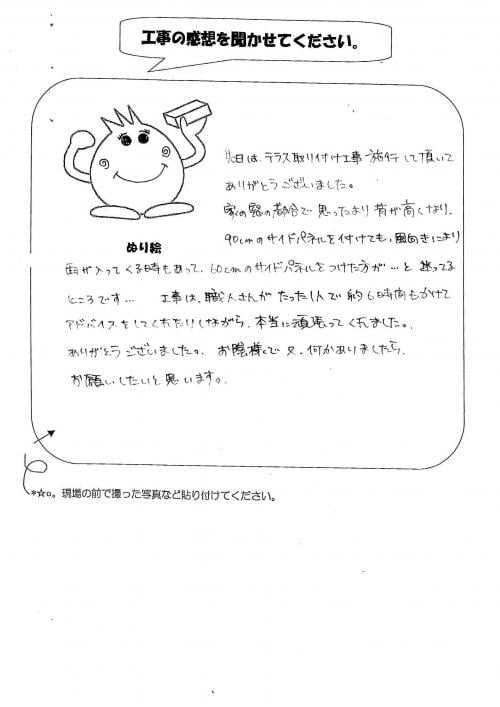 工事の感想を聞かせてください。
先日は、テラス取り付け工事施行して頂いて
ありがとうございました。
家の窓の都合で思ったより背が高くなり、
90cmのサイドパネルを付けても、風向きにより
ぬり絵
雨が入ってくる時もあって、60cmのサイドパネルをつけた方が…と迷ってる
ところです… 工事は、職人さんがたった1人で約6時間もかけて
アドバイスをしてくれたりしながら、本当に頑張ってくれました。
ありがとうございました。お陰様で又、何かありましたら、
お願いしたいと思います。
*☆○。現場の前で撮った写真など貼り付けてください。